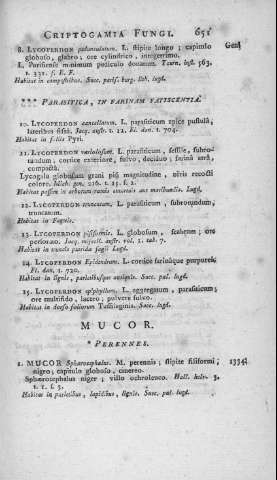 CRIPTOGAMIA FUNGI. 651
8. LYCOPERDON pedunculatum. L. stipite longo; capitulo Gen.
globoso, glabro; ore cylindrico, integerrimo.
L. Parisiense minimum pediculo donatum. Tourn. inst. 563.
t. 331. f. E. F.
Habitat in campestribus. Succ. paris. burg. lith. lugd.
*** PARASITICA, IN FARINAM FATISCENTIA.
10. LYCOPERDON cancellatum. L. parasiticum apice pustula,
lateribus fissa. Jacq. austr. t. 12. Fl. dan. t. 704.
Habitat in foliis Pyri.
11. LYCOPERDON variolosum. L. parasiticum, sessile, subro-
tundum, cortice exteriore, fulvo, deciduo; farina atra,
compacta.
Lycogala globosum grani pisi magnitudine, viris recosti
colore. Mich. gen. 216. t. 95. f. 2.
Habitat passim in arborum ramis emortuis aut marcidis. Lugd.
12. LYCOPERDON truncatum. L. parasiticum, subrotundum,
truncatum.
Habitat in
13. LYCOPERDON pisiforme. L. globosum, scabrum; ore
perforato. Jacq. miscell. austr. vol. 1. tab. 7.
Habitat in truncis putridis fagi. Lugd.
14. LYCOPERDON Epidendrum. L. cortice farinaque purpureis.
Fl. dan. t. 720.
Habitat in lignis, parietibusque antiquis. Succ. pal. lugd.
15. LYCOPERDON epiphyllum. L. aggregatum, parasiticum;
ore multifido, lacero; pulvere fulvo.
Habitat in dorso foliorum Tussilaginis. Succ. pal. lugd.
MUCOR.
* PERENNES.
1. MUCOR Sphærocephalus. M. perennis; stipite filiformi, 1334.
nigro; capitulo globoso, cinereo.
Sphærocephalus niger; villo ochroleuco. Hall. helv. 3.
t. 1. f. 3.
Habitat in parietibus, lapidibus, lignis. Succ. pal. lugd.